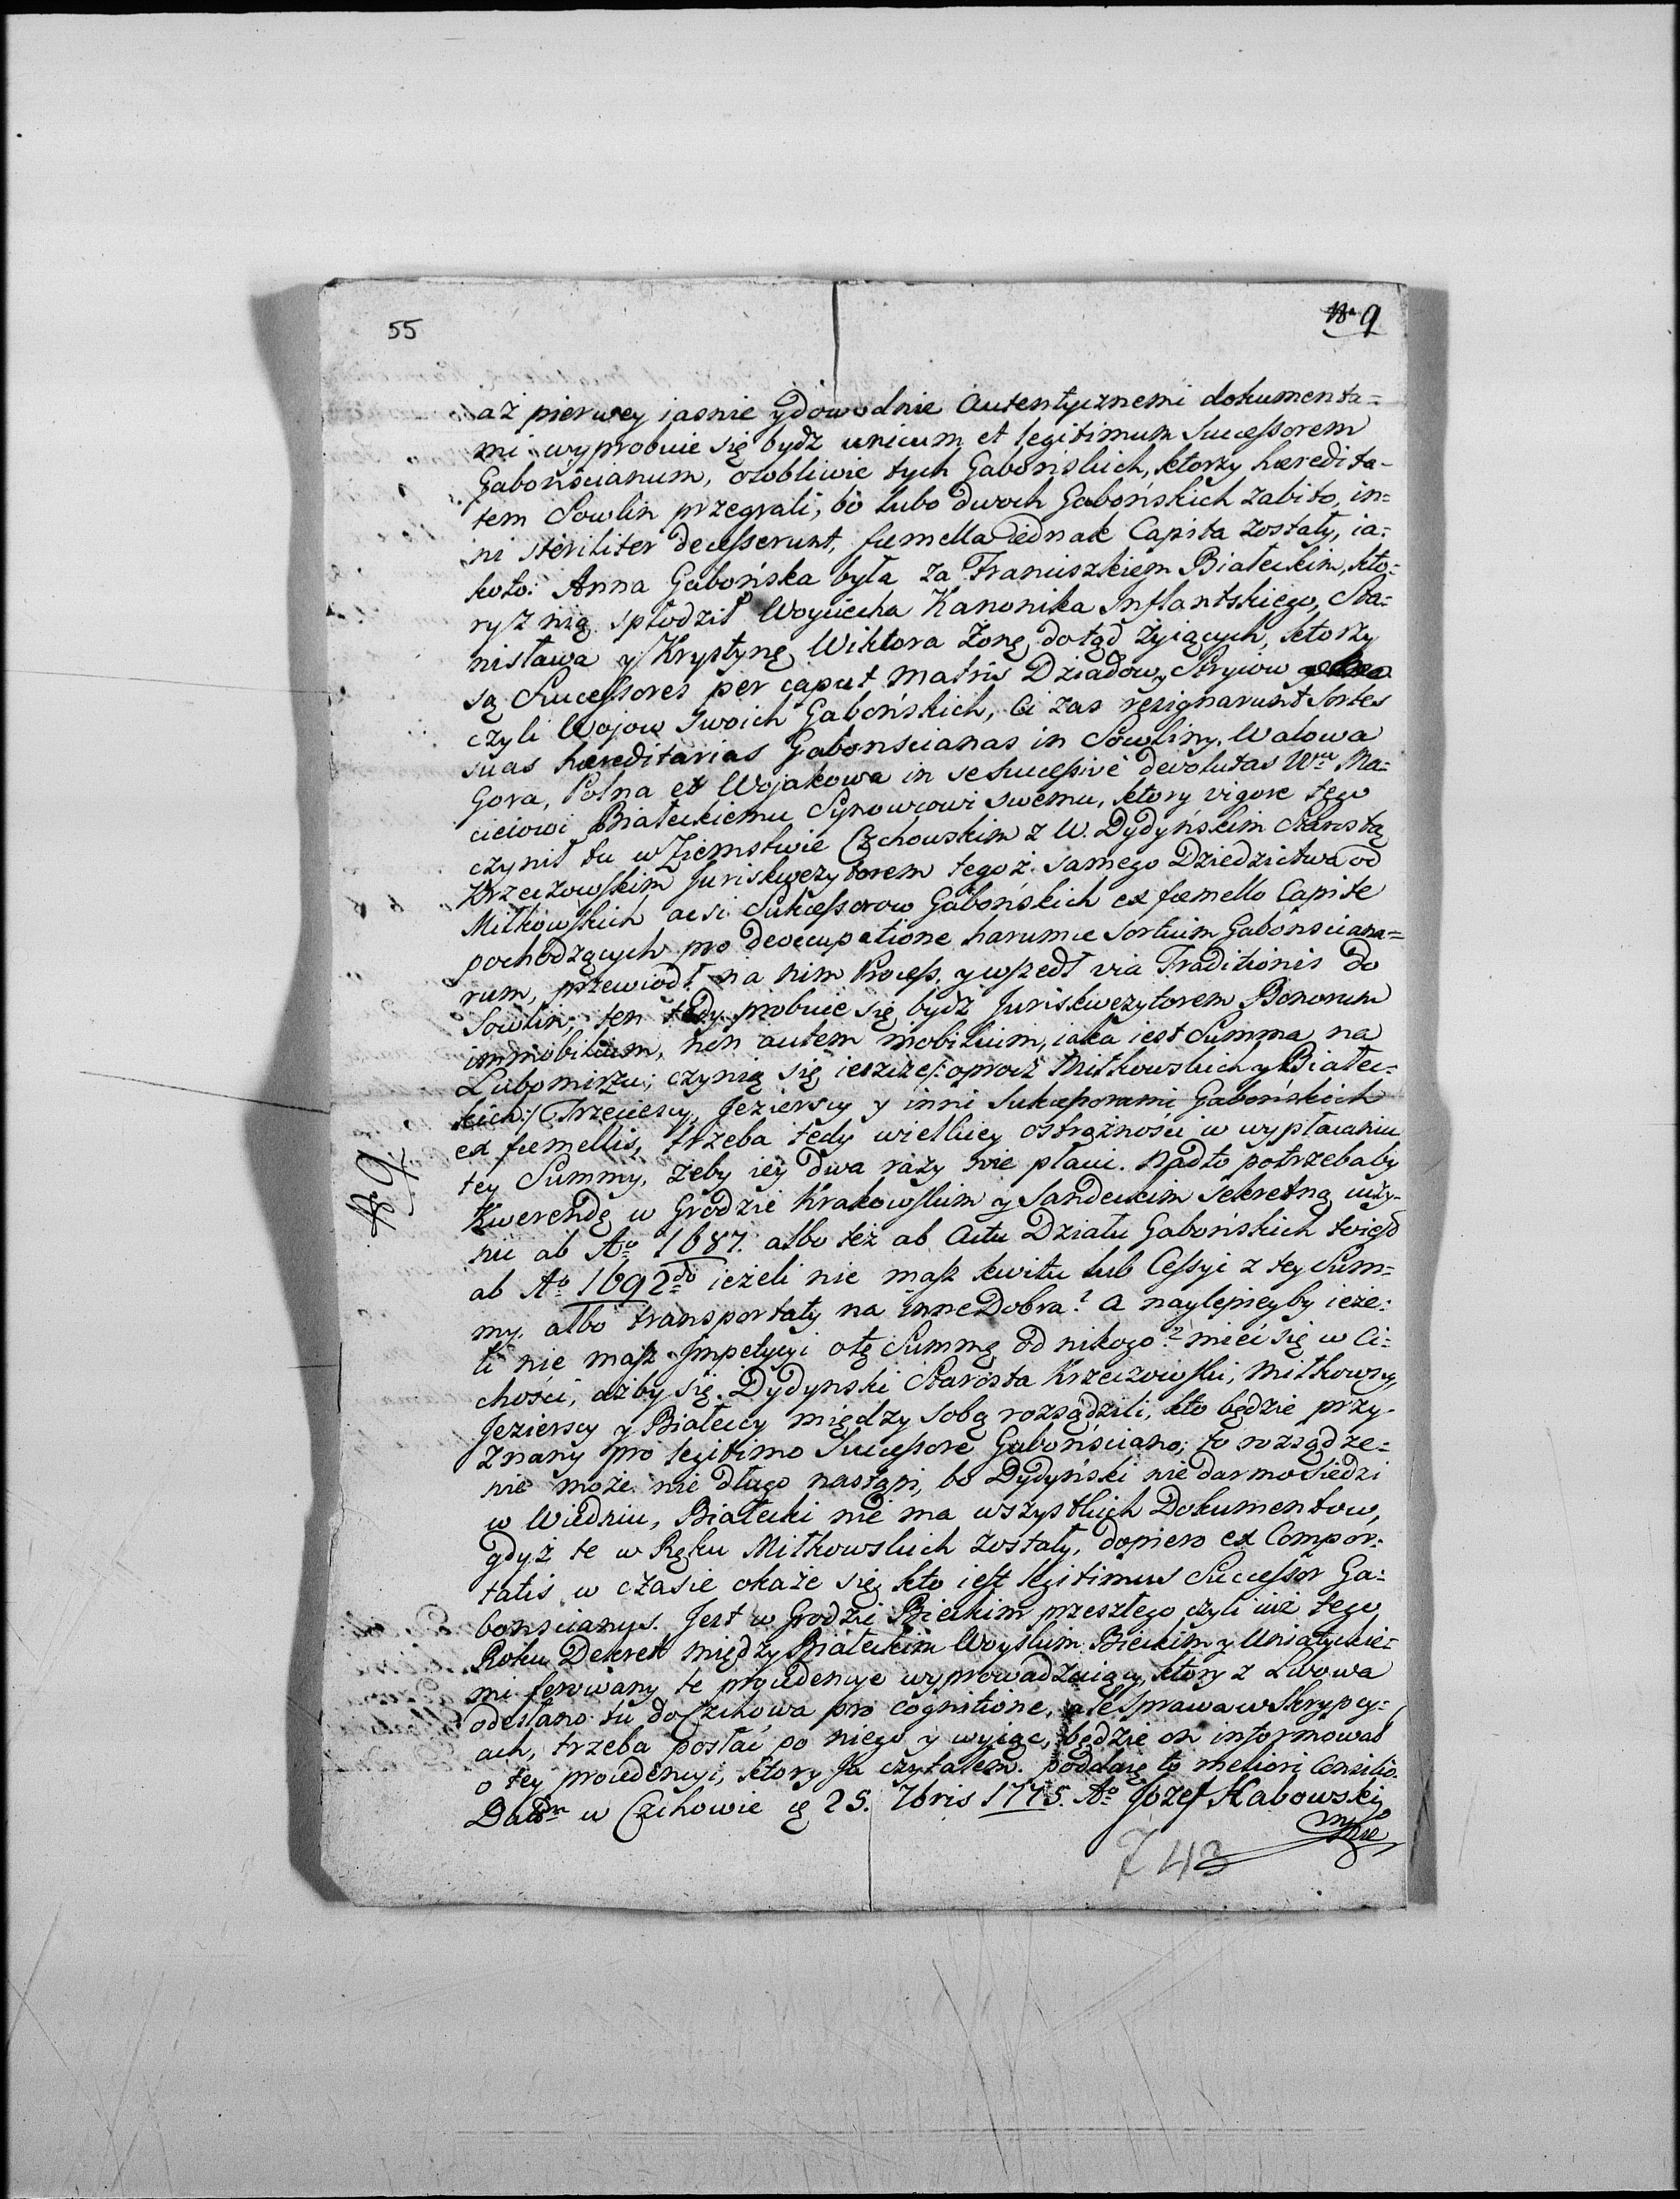 55
N 9
aż pierwey iasnie y dowodnie Autentycznemi dokumenta=
mi wyprobuie się bydz unicum et legitimum Sucessorem
Gabońscianum, osobliwie tych Gabońskich, ktorzy hæredita-
tem Sowlin przegrali, bo lubo dwoch Gabońskich zabito, in=
ni steriliter decesserunt, fæmella iednak Capita zostały, ia=
koto: Anna Gabońska była za Franciszkiem Białeckim, kto=
ry z nią spłodził Woyciecha Kanonika Inflantskiego, Sta=
nisława y Krystynę Wiktora żonę dotąd żyiących, ktorzy
są Sucessores per caput Matris Dziadow, Stryiow
czyli Wojow swoich Gabońskich, Ci zas resignarunt Sortes
suas hæreditarias Gabonscianas in Sowliny, Walowa
Gora, Polna et Wojakowa in se sucessivè devolutas Wmu Ma=
cieiowi Białeckiemu Synowcowi swemu, ktory vigore tego
czynił tu w Ziemstwie Czchowskim z W. Dydyńskim Starostą
Krzeczowskim Juriskwezytorem tegoż samego Dziedzictwa od
Mitkowskich acsi Sukcessorow Gabońskich ex fæmello Capite
pochodzących pro deoccupatione harumce Sortium Gabonsciana=
rum, przewiodł na nim Process, y wszedł via Traditionis do
Sowlin; ten tedy probuie się bydz Juriskwezytorem Bonorum
immobilium, non autem mobilium, iaka iest Summa na
Lubomirzu; czynią się ieszcze /: oprocz Mitkowskich y Białec=
kich :/ Trzeciescy, Jezierscy y inni Sukcessorami Gabońskich
ex fæmellis, trzeba tedy wielkiey ostrożności w wypłacaniu
tey Summy, żeby iey dwa razy nie płaci. Nadto potrzebaby
N 9
Kwerendę w Grodzie Krakowskim y Sandeckim sekretną uczy-
nic ab Ao 1687. albo też ab Actu Działu Gabońskich
ab Ao 1692do ieżeli nie masz kwitu lub Cessyi z tey Sum=
my, albo transportaty na inne Dobra? a naylepieyby ieże=
li nie masz Impetycyi o tę Summę od nikogo? mieć się w Ci=
chości, ażby się Dydynski Starosta Krzeczowski, Mitkowscy,
Jezierscy y Białeccy między sobą rozsądzili, kto będzie przy-
znany pro legitimo Sucessore Gabońsciano; to rozsądze=
nie może nie długo nastąpi, bo Dydyński nie darmo siedzi
w Wiedniu, Białecki nie ma wszystkich Dokumentow,
gdyż te w Ręku Mitkowskich zostały, dopiero ex Compor=
tatis w czasie okaże się kto iest legitimus Sucessor Ga=
bonscianus. Jest w Grodzie Bieckim przeszłego czyli iuż tego
Roku Dekret między Białeckim Woyskim Bieckim y Uniatyckie=
mi ferowany te procedencye wyprowadzaiący, ktory z Lwowa
odesłano tu do Czchowa pro cognitione, ale Sprawa w Skrypcy=
ach, trzeba posłać po niego y wyiąc, będzie on informował
o tey procedencyi, ktory Ja czytałem. poddaię to meliori Consilio.
Datm w Czchowie 25. 7bris 1775. Ao Jozef Stabowski
mp
743